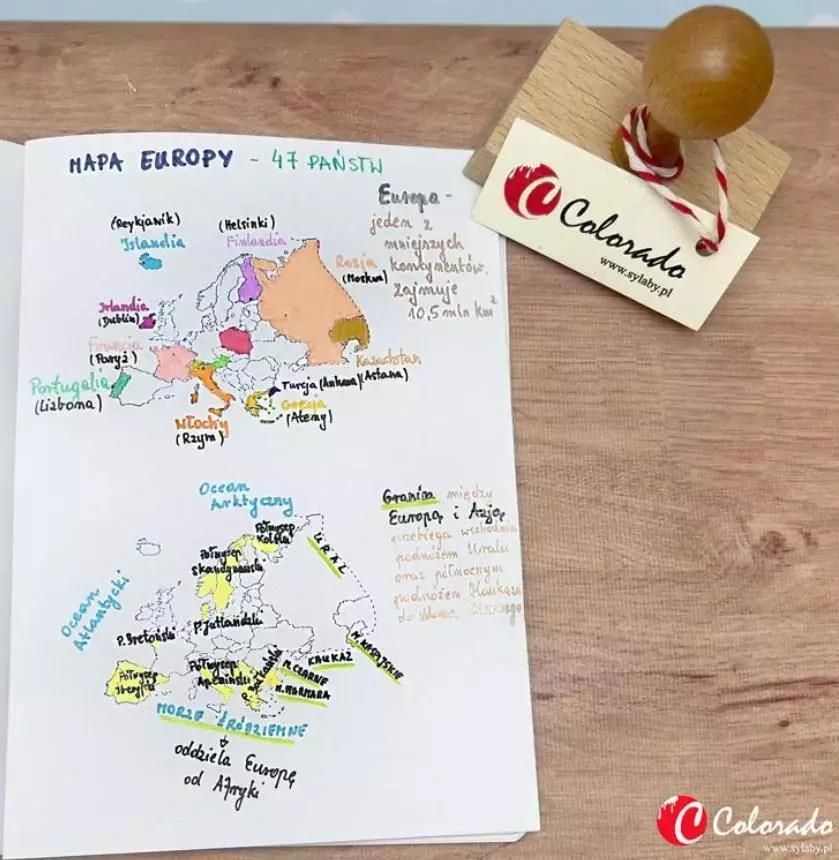 MAPA EUROPY - 47 PAŃSTW
Europa -
jeden z
mniejszych
kontynentów.
Zajmuje
10,5 mln km²
(Reykjawik)
Islandia
(Helsinki)
Finlandia
Rosja
(Moskwa)
Irlandia
(Dublin)
Francja
(Paryż)
Portugalia
(Lizbona)
Włochy
(Rzym)
Kazachstan
(Astana)
Turcja (Ankara)
Grecja
(Ateny)
Ocean
Arktyczny
Ocean
Atlantycki
Półwysep
Kolski
Półwysep
Skandynawski
URAL
P. Bretoński
P. Jutlandzki
Półwysep
Półwysep
Apeniński
P. Bałkański
M. CZARNE
M. MARMARA
KAUKAZ
M. KASPIJSKIE
MORZE ŚRÓDZIEMNE
oddziela Europę
od Afryki
Granica między
Europą i Azją
przebiega wschodnim
podnóżem Uralu
oraz północnym
podnóżem Kaukazu
do
Colorado
www.sylaby.pl
Colorado
www.sylaby.pl